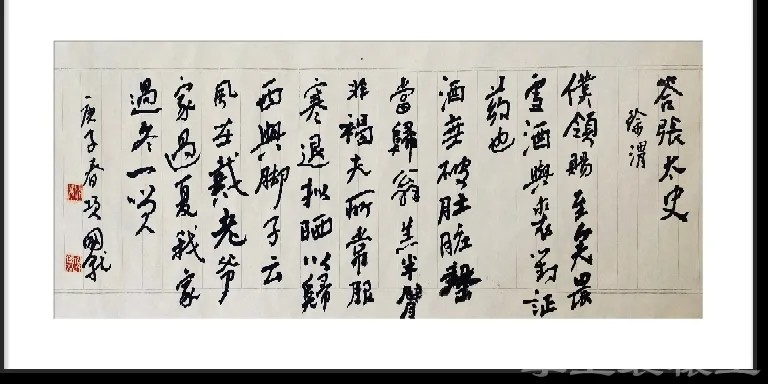 答張太史
徐渭
僕領賜至矣晨
雪酒與裘對証
葯也
酒無破肚脏罄
當歸甕羔半臂
非褐夫所常服
寒退拟晒以歸
西興脚子云
風在戴老爷
家過夏我家
過冬一笑
庚子春项國